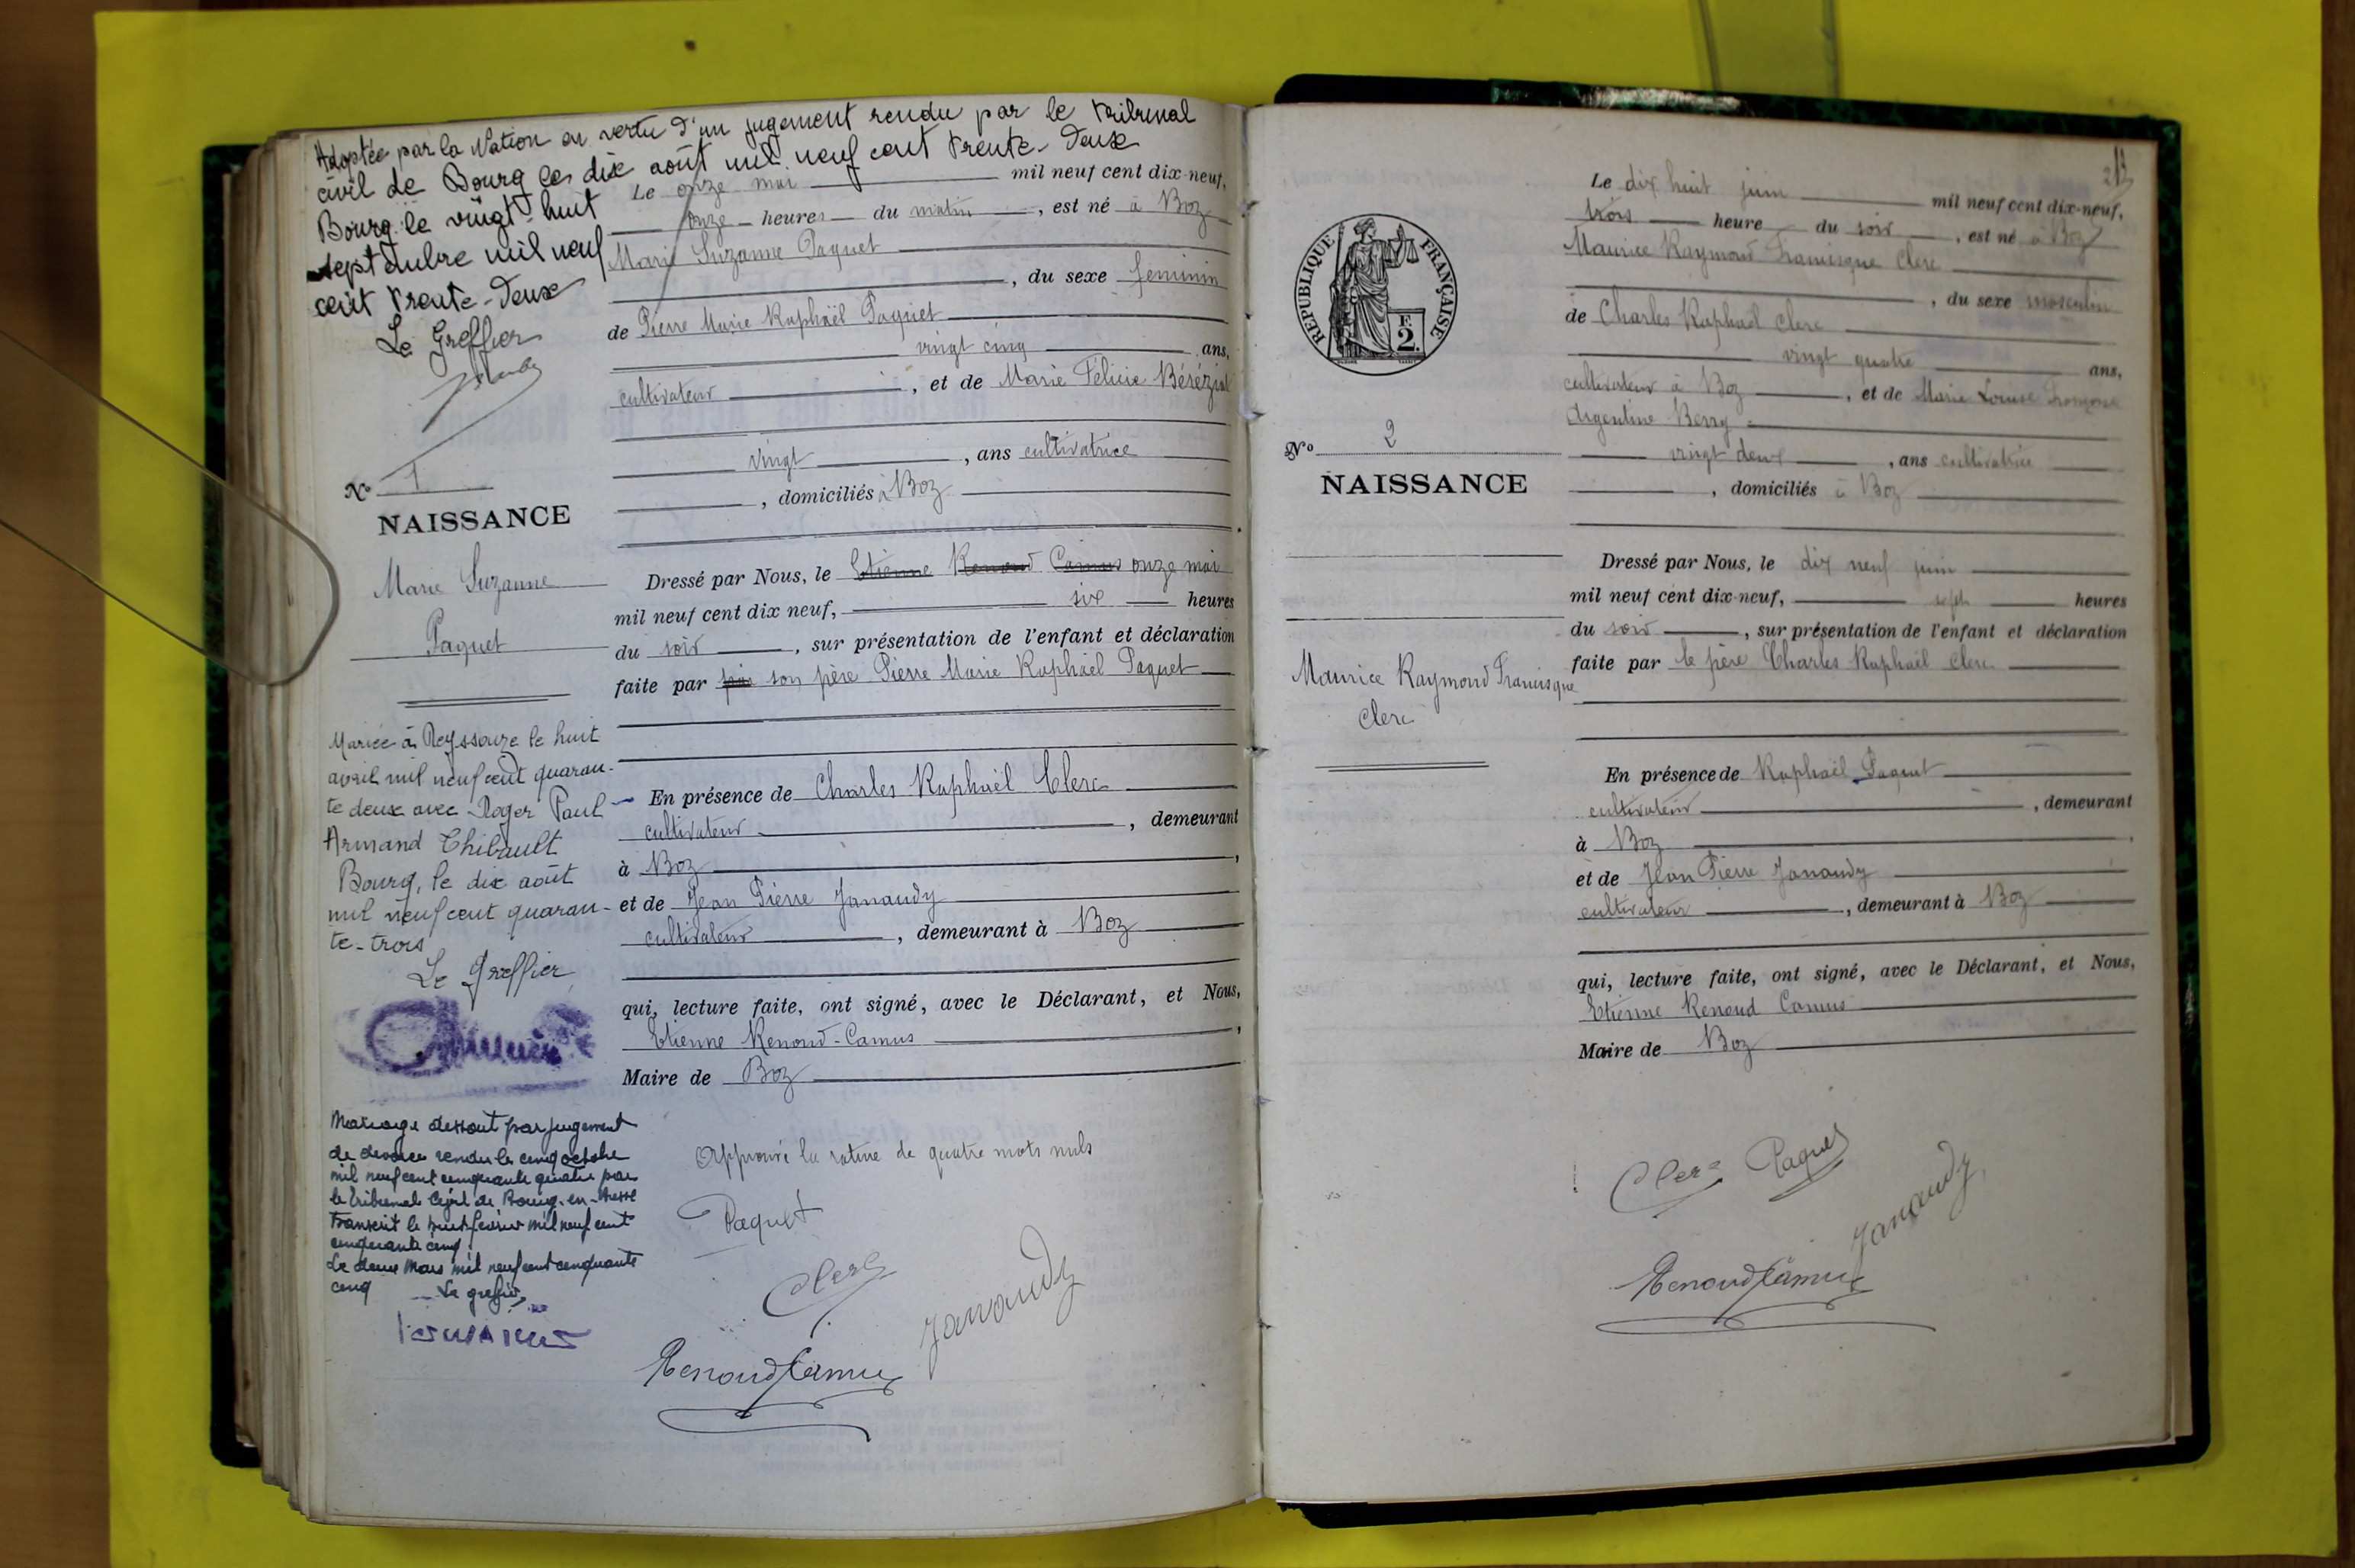 Adoptée par la Nation en vertu d'un jugement rendu par le tribunal
civil de Bourg le dix août mil neuf cent trente-deux
Bourg le vingt huit
septembre mil neuf
cent trente-deux
Le Greffier
N° 1
NAISSANCE
Marie Suzanne
Paquet
Mariée à Reyssouze le huit
avril mil neuf cent quaran-
te deux avec Roger Paul
Armand Thibault
Bourg, le dix août
mil neuf cent quaran-
te-trois
Le Greffier
Mariage dissout par jugement
de divorce rendu le cinq octobre
mil neuf cent cinquante quatre par
le tribunal Civil de Bourg-en-Bresse
transcrit le huit février mil neuf cent
cinquante cinq
Le deux Mars mil neuf cent cinquante
cinq Le greffier
Le onze mai mil neuf cent dix-neuf,
onze heures du matin, est né à Boz
Marie Suzanne Paquet
, du sexe feminin
de Pierre Marie Raphaël Paquet
vingt cinq ans,
cultivateur, et de Marie Félicie Béréziat
vingt, ans cultivatrice
, domiciliés à Boz
Dressé par Nous, le Etienne Renoud Camus onze mai
mil neuf cent dix neuf, six heures
du soir, sur présentation de l'enfant et déclaration
faite par par son père Pierre Marie Raphaël Paquet
En présence de Charles Raphaël Clerc
cultivateur, demeurant
à Boz,
et de Jean Pierre Janaudy
cultivateur, demeurant à Boz
qui, lecture faite, ont signé, avec le Déclarant, et Nous,
Etienne Renoud-Camus,
Maire de Boz
Approuvé la rature de quatre mots nuls
Paquet
Clerc
Janaudy
Renoud Camus
RÉPUBLIQUE FRANÇAISE
F.
2.
N° 2
NAISSANCE
Maurice Raymond Francisque
Clerc
Le dix huit juin mil neuf cent dix-neuf,
trois heure du soir, est né à Boz
Maurice Raymond Francisque Clerc
, du sexe masculin
de Charles Raphaël Clerc
vingt quatre ans,
cultivateur à Boz, et de Marie Louise Françoise
Argentine Berry
vingt deux, ans cultivatrice
, domiciliés à Boz
Dressé par Nous, le dix neuf juin
mil neuf cent dix-neuf, sept heures
du soir, sur présentation de l'enfant et déclaration
faite par le père Charles Raphaël Clerc
En présence de Raphaël Paquet
cultivateur, demeurant
à Boz,
et de Jean Pierre Janaudy
cultivateur, demeurant à Boz
qui, lecture faite, ont signé, avec le Déclarant, et Nous,
Etienne Renoud Camus
Maire de Boz
Clerc Paquet
Janaudy
Renoud Camus